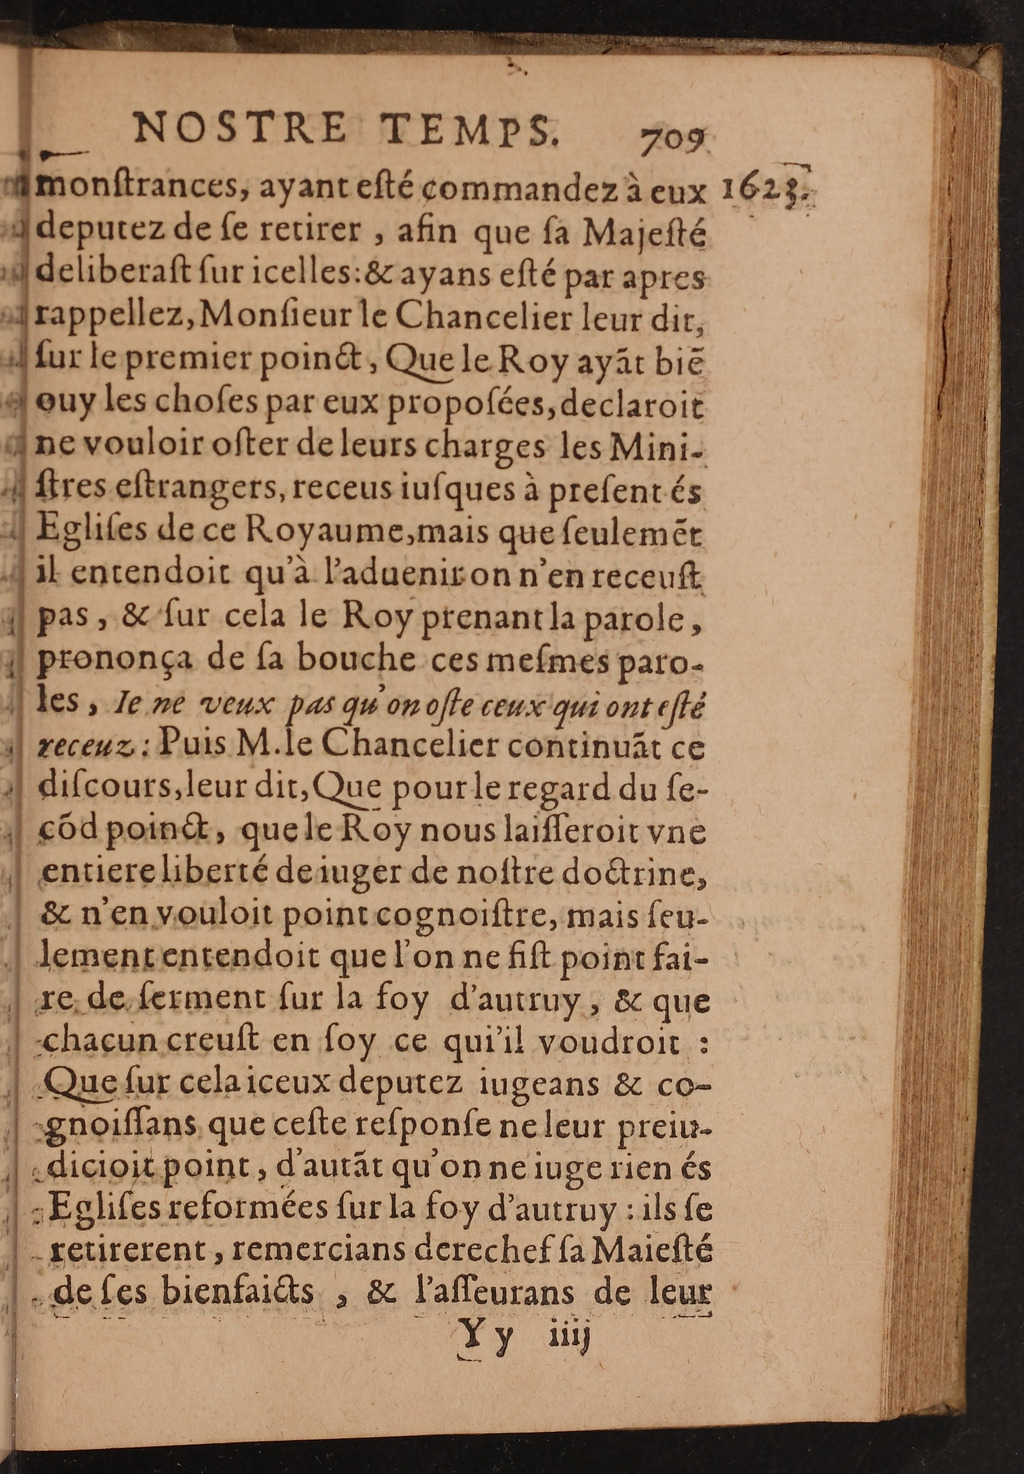 NOSTRE TEMPS. 709
monſtrances, ayant eſté commandez à eux 1623.
deputez de ſe retirer , afin que ſa Majeſté
deliberaſt ſur icelles: & ayans eſté par apres
rappellez, Monſieur le Chancelier leur dit,
ſur le premier poinct , Que le Roy ayāt biē
ouy les choſes par eux propoſées, declaroit
ne vouloir oſter de leurs charges les Mini-
ſtres eſtrangers, receus iuſques à preſent és
Egliſes de ce Royaume, mais que ſeulemēt
il entendoit qu'à l'aduenir on n'en receuſt
pas , & ſur cela le Roy prenant la parole ,
prononça de ſa bouche ces meſmes paro-
les , Ie ne veux pas qu'on oſte ceux qui ont eſté
receuz : Puis M. le Chancelier continuāt ce
diſcours, leur dit, Que pour le regard du ſe-
cōd poinct , que le Roy nous laiſſeroit vne
entiere liberté de iuger de noſtre doctrine,
& n'en vouloit point cognoiſtre, mais ſeu-
lement entendoit que l'on ne fiſt point fai-
re de ſerment ſur la foy d'autruy , & que
chacun creuſt en ſoy ce qui'il voudroit :
Que ſur cela iceux deputez iugeans & co-
gnoiſſans que ceſte reſponſe ne leur preiu-
dicioit point , d'autāt qu'on ne iuge rien és
Egliſes reformées ſur la foy d'autruy : ils ſe
retirerent , remercians derechef ſa Maieſté
de ſes bienfaicts , & l'aſſeurans de leur
Y y iiij